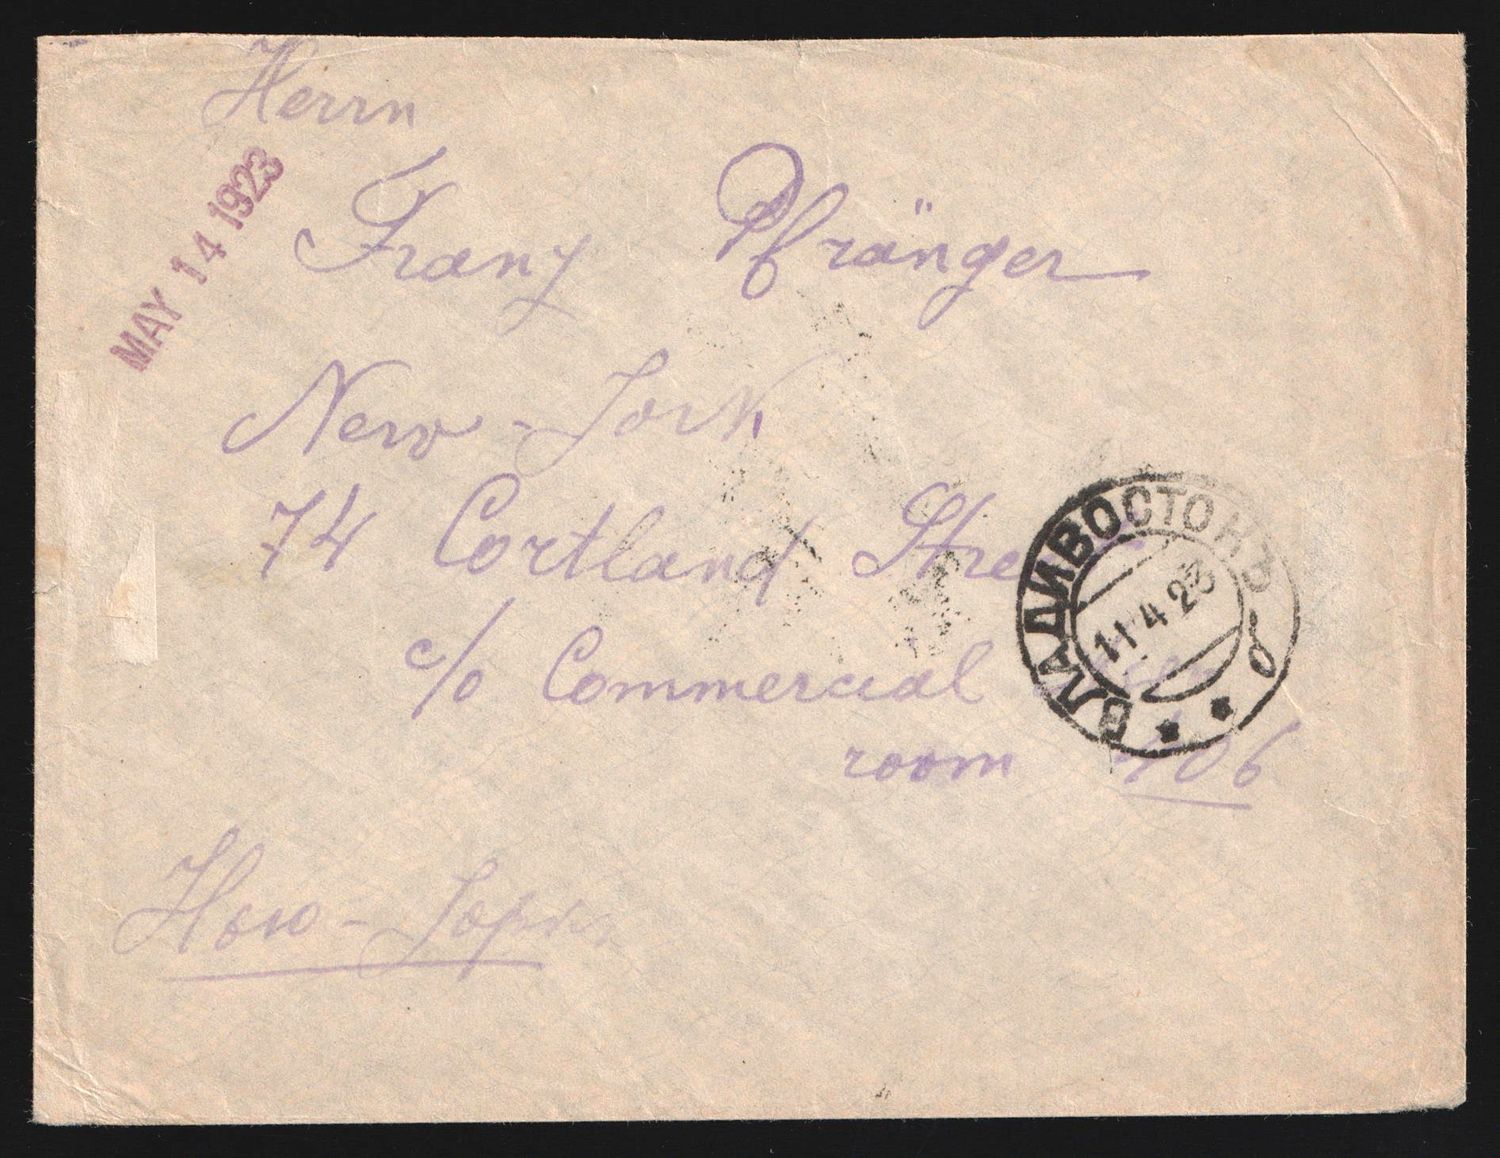 Herrn
MAY 14 1923
Franz Pfränger
New-Jork
74 Cortland Street
c/o Commercial
room 406
ВЛАДИВОСТОКЪ
11 4 23
б
Нью-Іоркъ